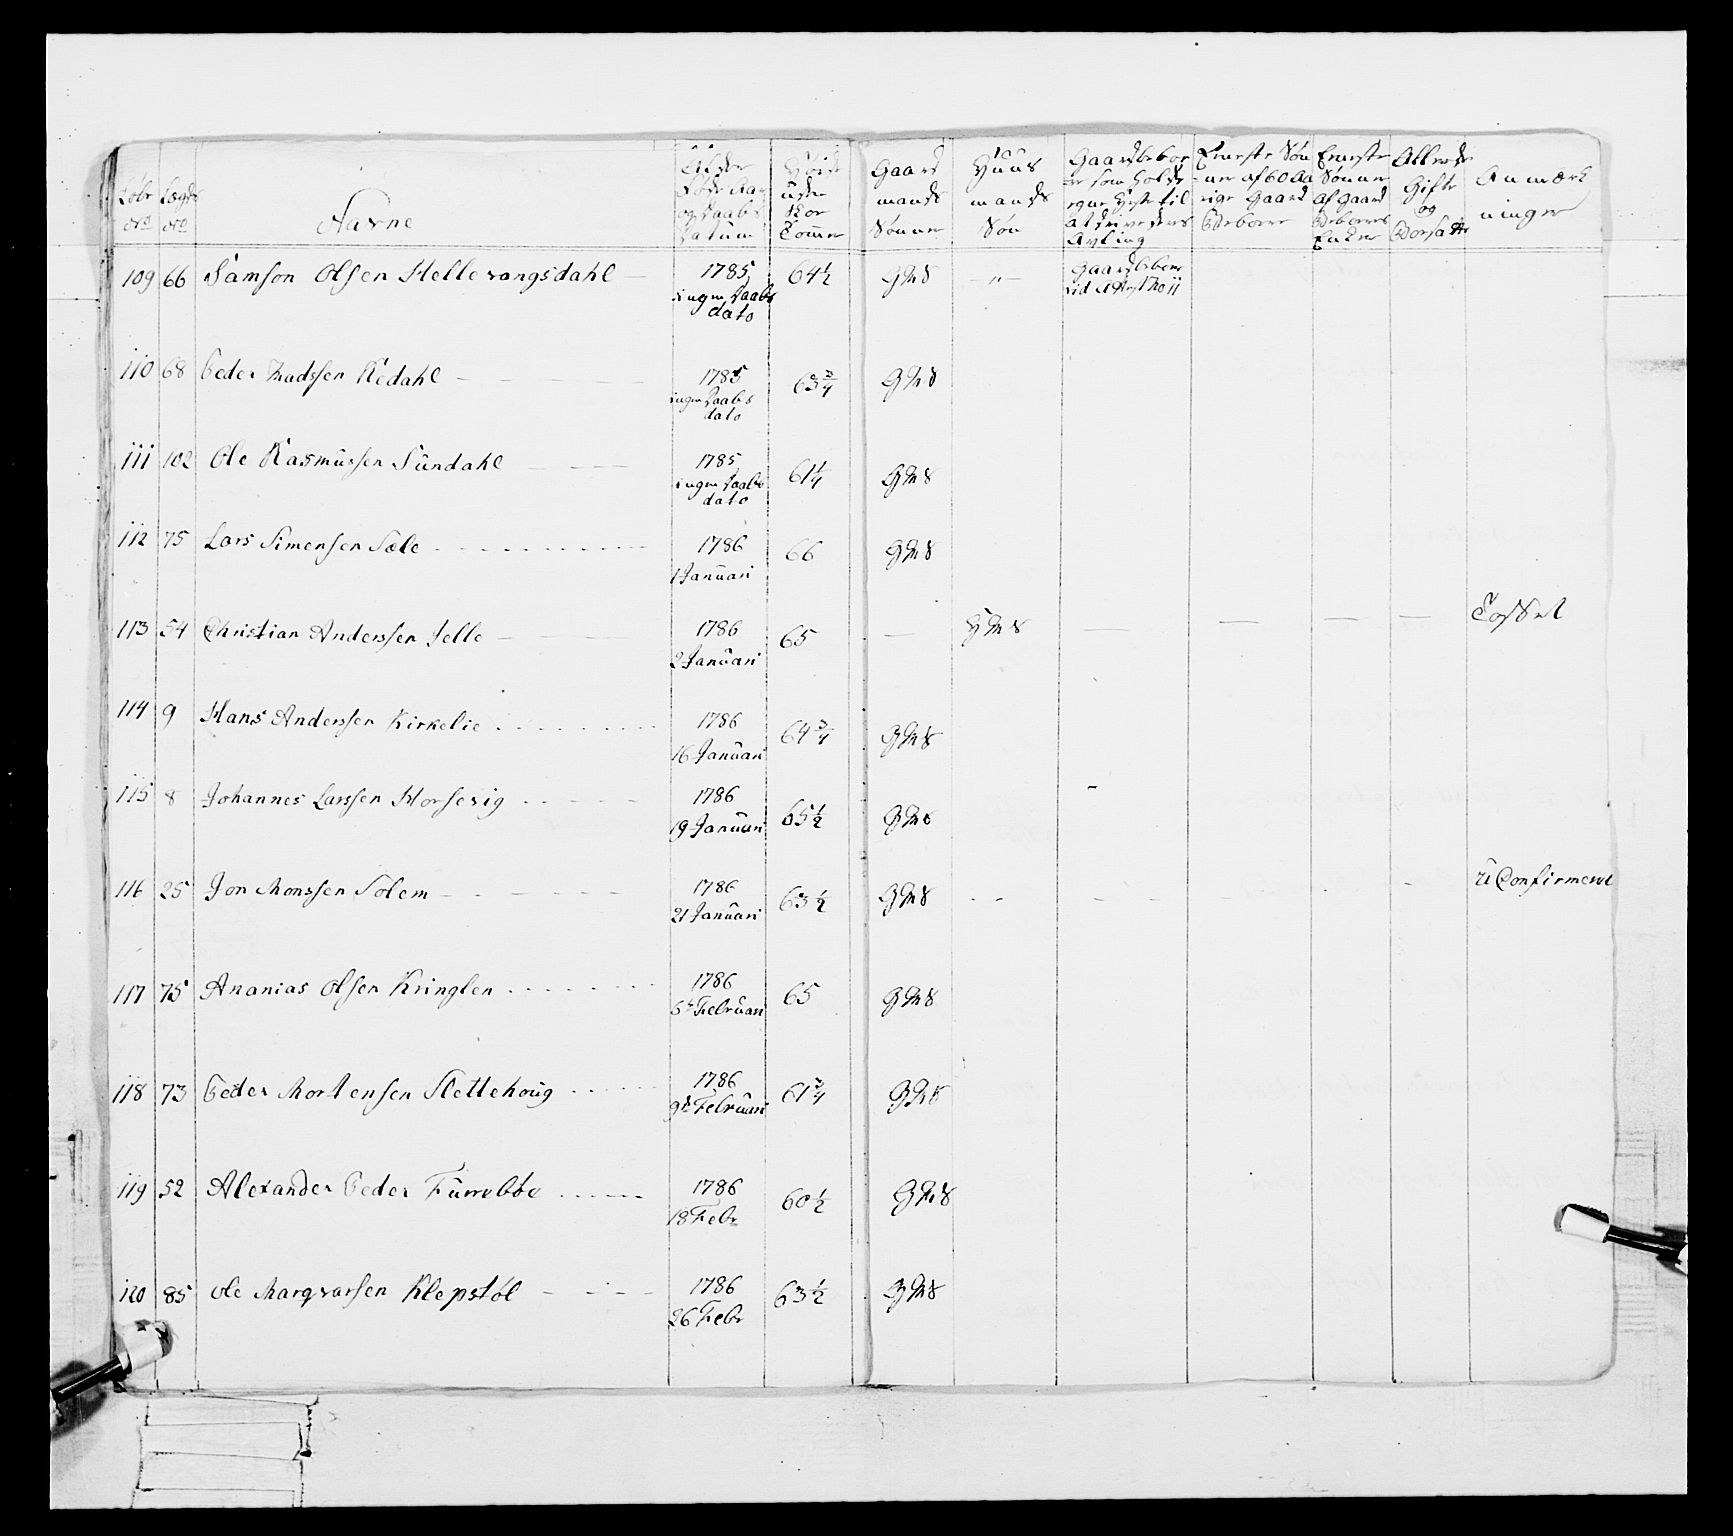 Løbe No Lægds No Navne Alder Føde Aar og Daabs Datum Høide uden Skoe Tommer Gaard mands Sønner Huus mands Søn Gaardbeboe re som holde egne Heste til at drive deres Avling Eeneste Søn ner af 60 Aa rige Gaard Beboere Eeneste Sønner af Gaard Beboeres Enker Allerede Gifte og Bosatte Anmærk ninger
109 66 Samson Olsen Hellevangsdahl 1785 ingen Daabs dato 64½ GMS — " — Gaardbeboer
110 68 Peder Madssen Kiedahl 1785 ingen Daabs dato 63¾ GMS
111 102 Ole Rasmussen Sundahl 1785 ingen Daabs dato 61¼ GMS
112 75 Lars Simensen Sæle 1786 1 Januari 66 GMS
113 54 Christian Anderssen Selle 1786 2 Januari 65 — HMS — — — — Tosset
114 9 Hans Anderssen Kirkelie 1786 16 Januari 64¾ GMS
115 8 Johannes Larssen Horsevig 1786 19 Januari 65½ GMS
116 25 Jon Monssen Solem 1786 21 Januari 63½ GMS UConfirmeret
117 75 Ananias Olsen Kringlen 1786 5t Februari 65 GMS
118 73 Peder Mortensen Slettehoug 1786 9de Februari 61¾ GMS
119 52 Alexander Peder Furreböe 1786 18 Febr 60½ GMS
120 85 Ole Marqvarsen Klepstøl 1786 26 Febr 63½ GMS